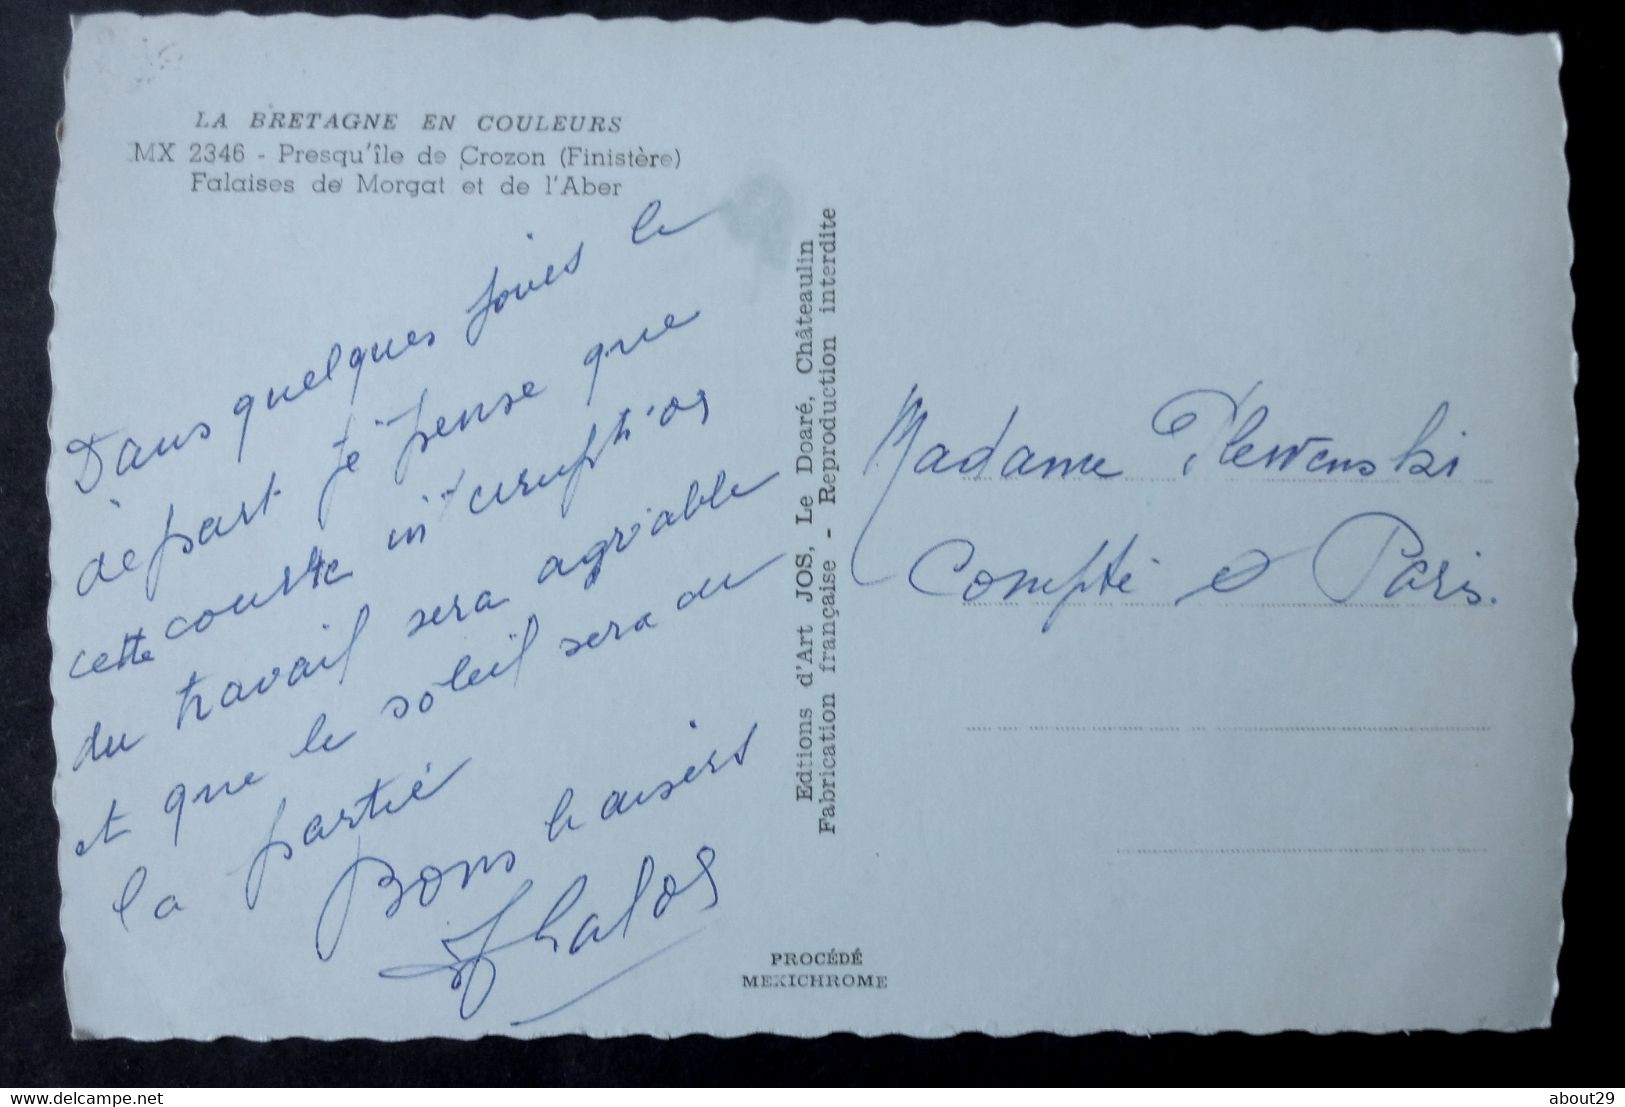 LA BRETAGNE EN COULEURS
MX 2346 - Presqu'île de Crozon (Finistère)
Falaises de Morgat et de l'Aber
Dans quelques jours le
départ je pense que
cette courte interruption
du travail sera agréable
et que le soleil sera de
la partie
Bons baisers
Edtions d'Art JOS, Le Doaré, Châteaulin
Fabrication française - Reproduction interdite
Madame Plewenski
Compté Paris.
PROCÉDÉ
MEXICHROME
delcampe.net
about29